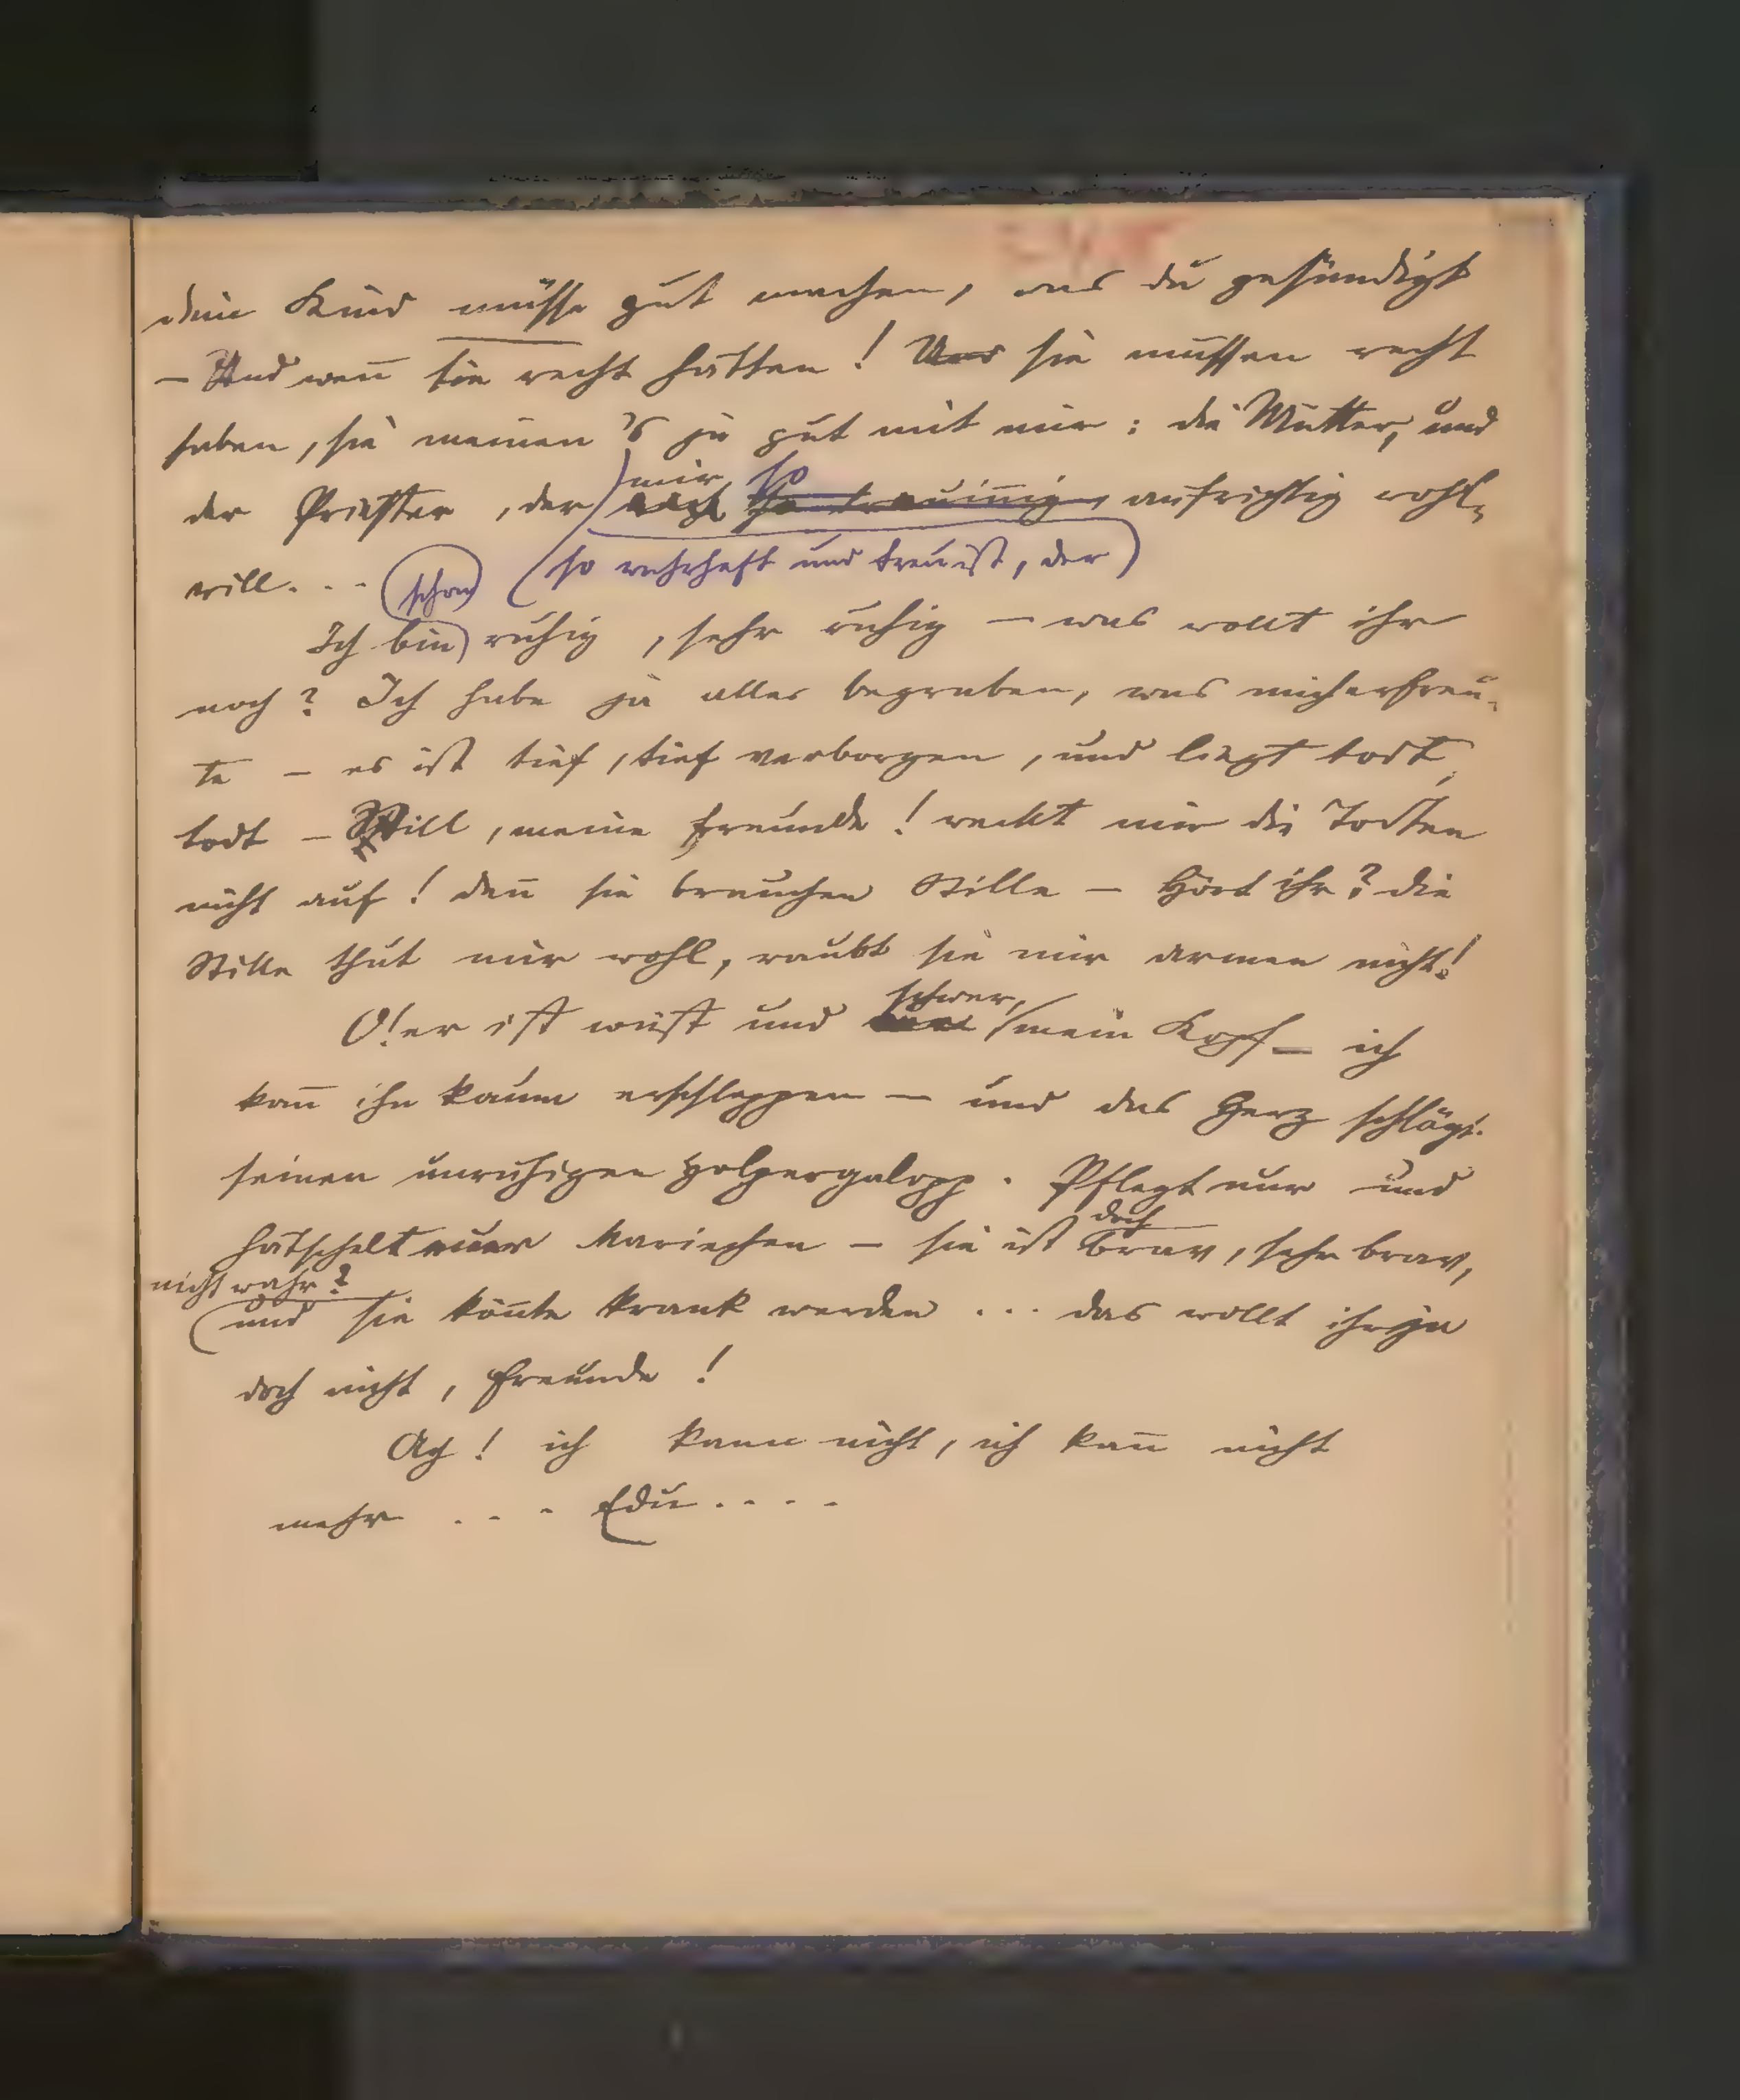 dein Kind müsse gut machen, was du gesündigt
– Und wen̄ sie recht hätten! Und sie müssen recht
haben, sie meinen 's ja gut mit mir: die Mutter, und
mir so
der Priester, der auch so treuinnig, aufrichtig wohl-
so wahrhaft und treu ist, der
will... schon
Ich bin ruhig, sehr ruhig – was wollt ihr
noch? Ich habe ja alles begraben, was mich erfreu-
te – es ist tief, tief verborgen, und liegt todt,
todt – Still, meine Freunde! weckt mir die Todten
nicht auf! den̄ sie brauchen Stille – Hört ihr? die
Stille thut mir wohl, raubt sie mir armen nicht!
schwer,
O! er ist wüst und mein Kopf – ich
kan̄ ihn kaum erschleppen – und das Herz schlägt
seinen unruhigen Holpergalopp. Pflegt nur und
doch
hätschelt euer Mariechen – sie ist brav, sehr brav,
nicht wahr?
und sie kön̄te krank werden ... das wollt ihr ja
doch nicht, Freunde!
Ach! ich kann nicht, ich kan̄ nicht
mehr ... Edu....